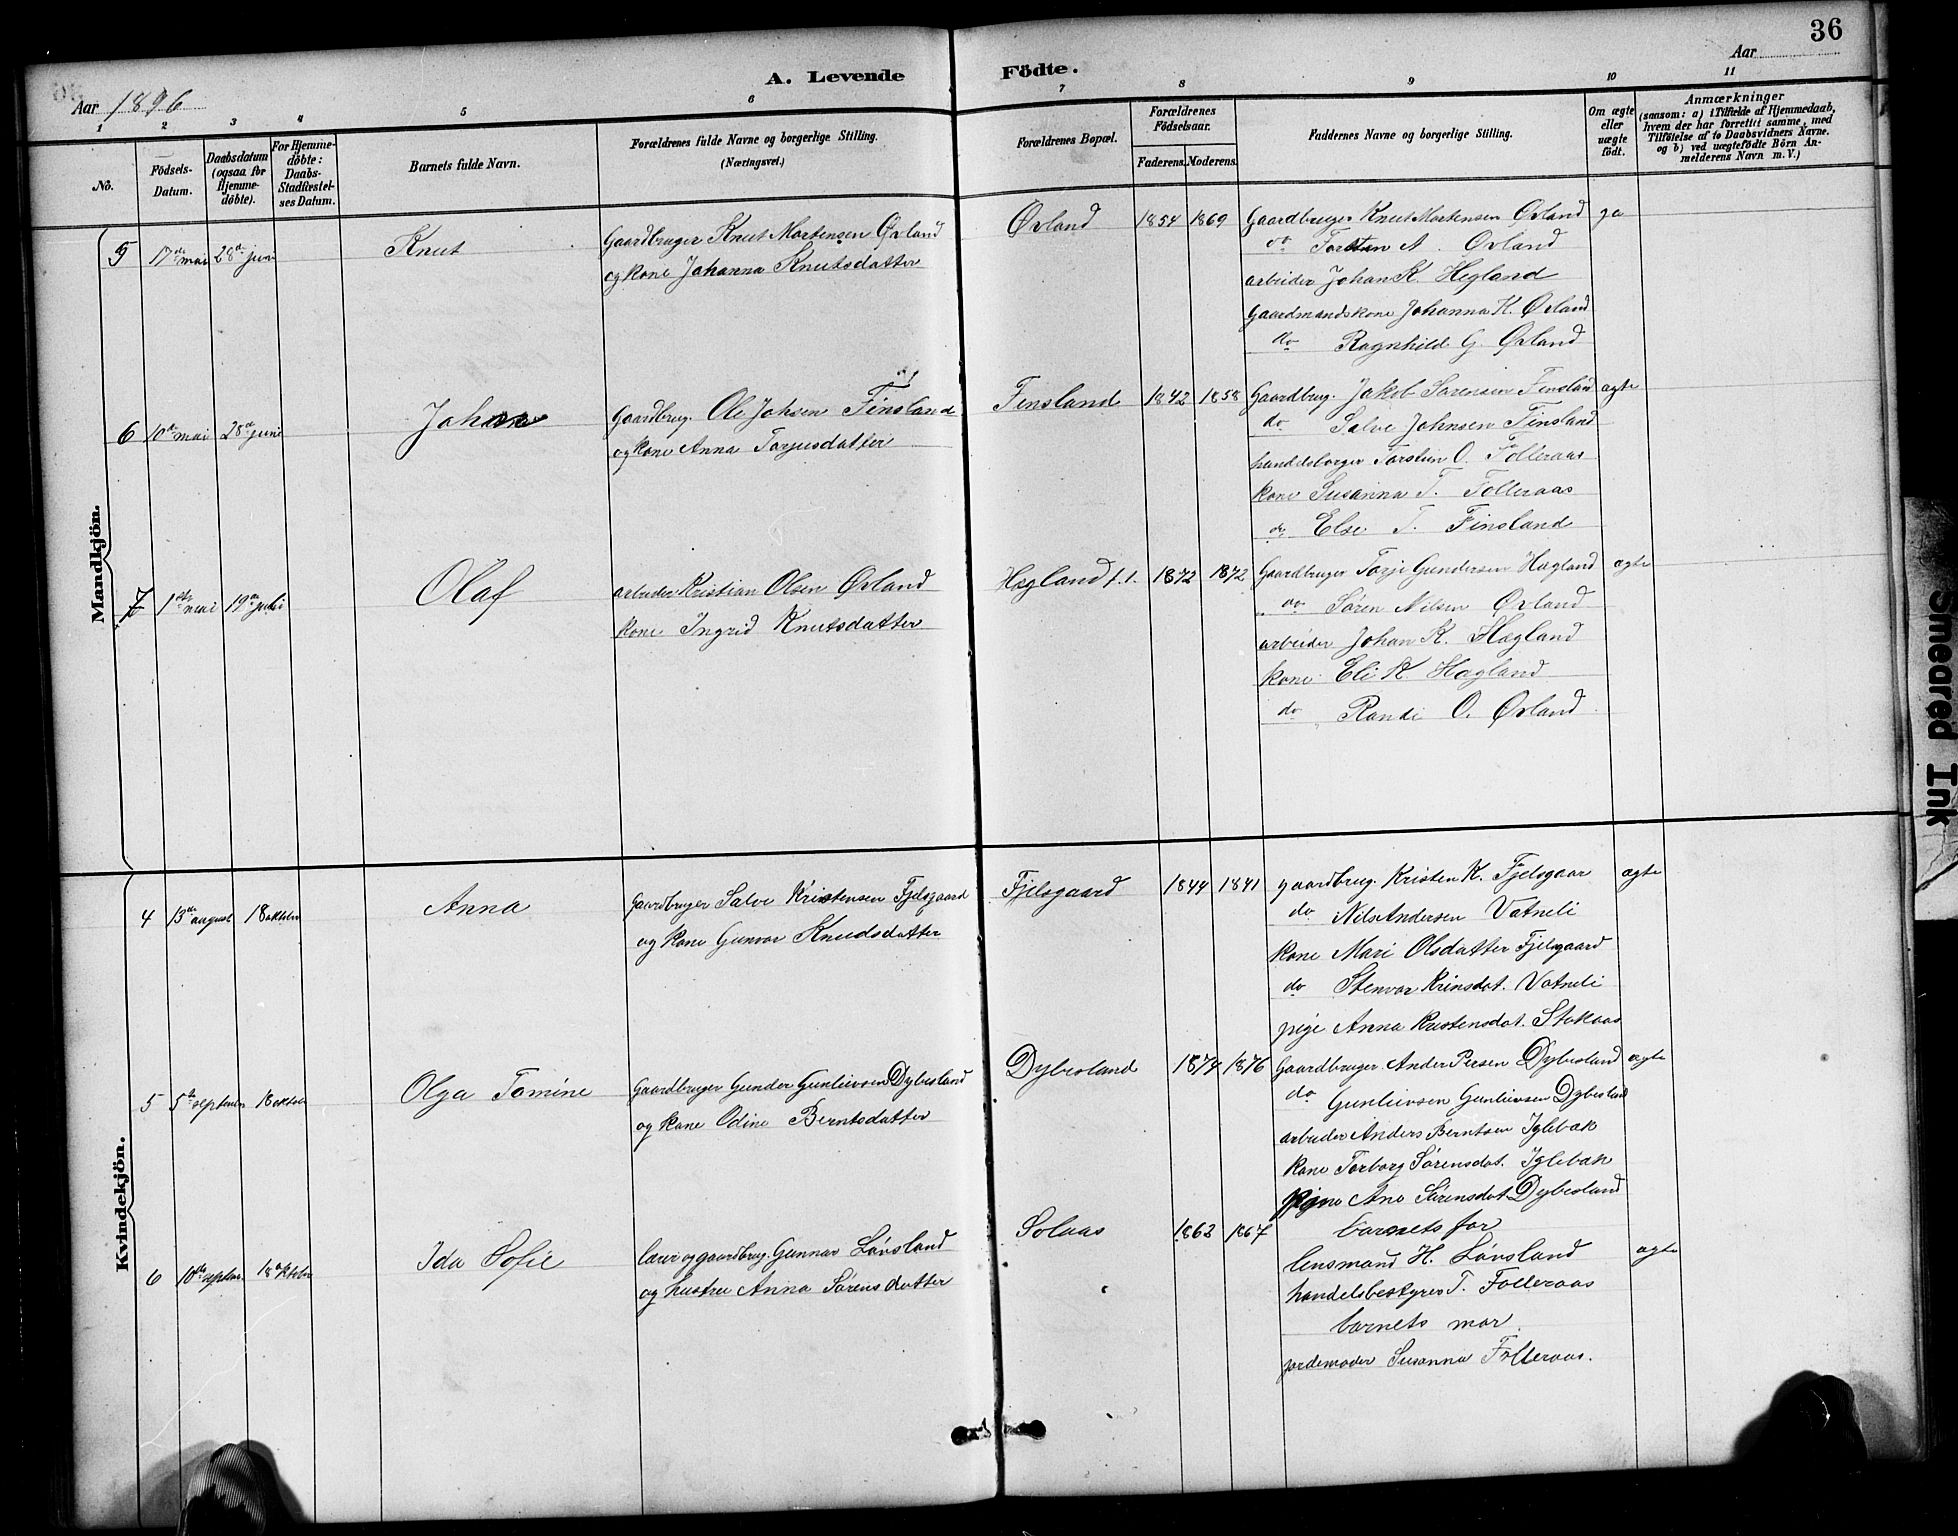 36
A. Levende Födte.
Aar 1896
Aar
1 2 3 4 5 6 7 8 9 10 11
No.
Födsels-Datum.
Daabsdatum (ogsaa for Hjemmedöbte).
For Hjemmedöbte: Daabs-Stadfæstelses Datum.
Barnets fulde Navn.
Forældrenes fulde Navne og borgerlige Stilling.
(Næringsvei.)
Forældrenes Bopæl.
Forældrenes Födselsaar.
Faderens. Moderens.
Faddernes Navne og borgerlige Stilling.
Om ægte eller uægte födt.
Anmærkninger
(saasom: a) i Tilfælde af Hjemmedaab, hvem der har forrettet samme, med Tilföielse af to Daabsvidners Navne. og b) ved uægtefödte Börn Anmelderens Navn m. V.)
Mandkjön.
5 17de mai 28de juni Knut
Gaardbruger Knut Mortensen Øvland
og kone Johanna Knutsdatter
Øvland 1854 1869
Gaardbruger Knut Mortensen Øvland
do Torsten A. Øvland
arbeider Johan K. Hegland
Gaardmandskone Johanna K. Øvland
do Ragnhild G. Øvland
6 10de mai 28de juni Johan
Gaardbrug. Ole Johsen Finsland
og kone Anna Torjusdatter
Finsland 1842 1858
Gaardbrug. Jakob Sørensen Finsland ægte
do Salve Johnsen Finsland
handelsborger Torsten O. Folleraas
kone Susanna T. Folleraas
do Else T. Finsland
7 1ste mai 19de juli Olaf
arbeider Kristian Olsen Øvland
kone Ingrid Knutsdatter
Hægland f.t. 1872 1872
Gaardbruger Torje Gundersen Hægland ægte
do Søren Nilsen Øvland
arbeider Johan K. Hægland
kone Eli K Hægland
do Randi O. Øvland
Kvindekjön.
4 13de august 18 oktober Anna
Gaardbruger Salve Kristensen Fjelsgaard
og kone Gunvor Knudsdatter
Fjelsgaard 1844 1841
gaardbrug. Kristen K. Fjelsgaar ægte
do Nils Andersen Vatneli
kone Mari Olsdatter Fjelsgaard
do Stenvor Krinsdat. Vatneli
pige Anna Kristensdat. Stakaas
5 5te september 18 oktober Olga Tomine
Gaardbruger Gunder Gunleivsen Dybesland
og kone Odine Berntsdatter
Dybesland 1874 1876
Gaardbruger Ander Persen Dybesland ægte
do Gunleivsen Gunleivsen Dybesland
arbeider Anders Berntsen Iglebæk
kone Torborg Sørensdat. Iglebæk
pige Ane Sørensdat Dybesland
6 10de septbr. 18 oktober Ida Sofie
lærer og gaardbrug. Gunnar Løvsland
og hustru Anna Sørensdatter
Solaas 1862 1867
barnets far
lensmand H. Løvsland ægte
handelsbestyrer T. Folleraas
barnets mor
jordemoder Susanna Folleraas.
Smeared Ink